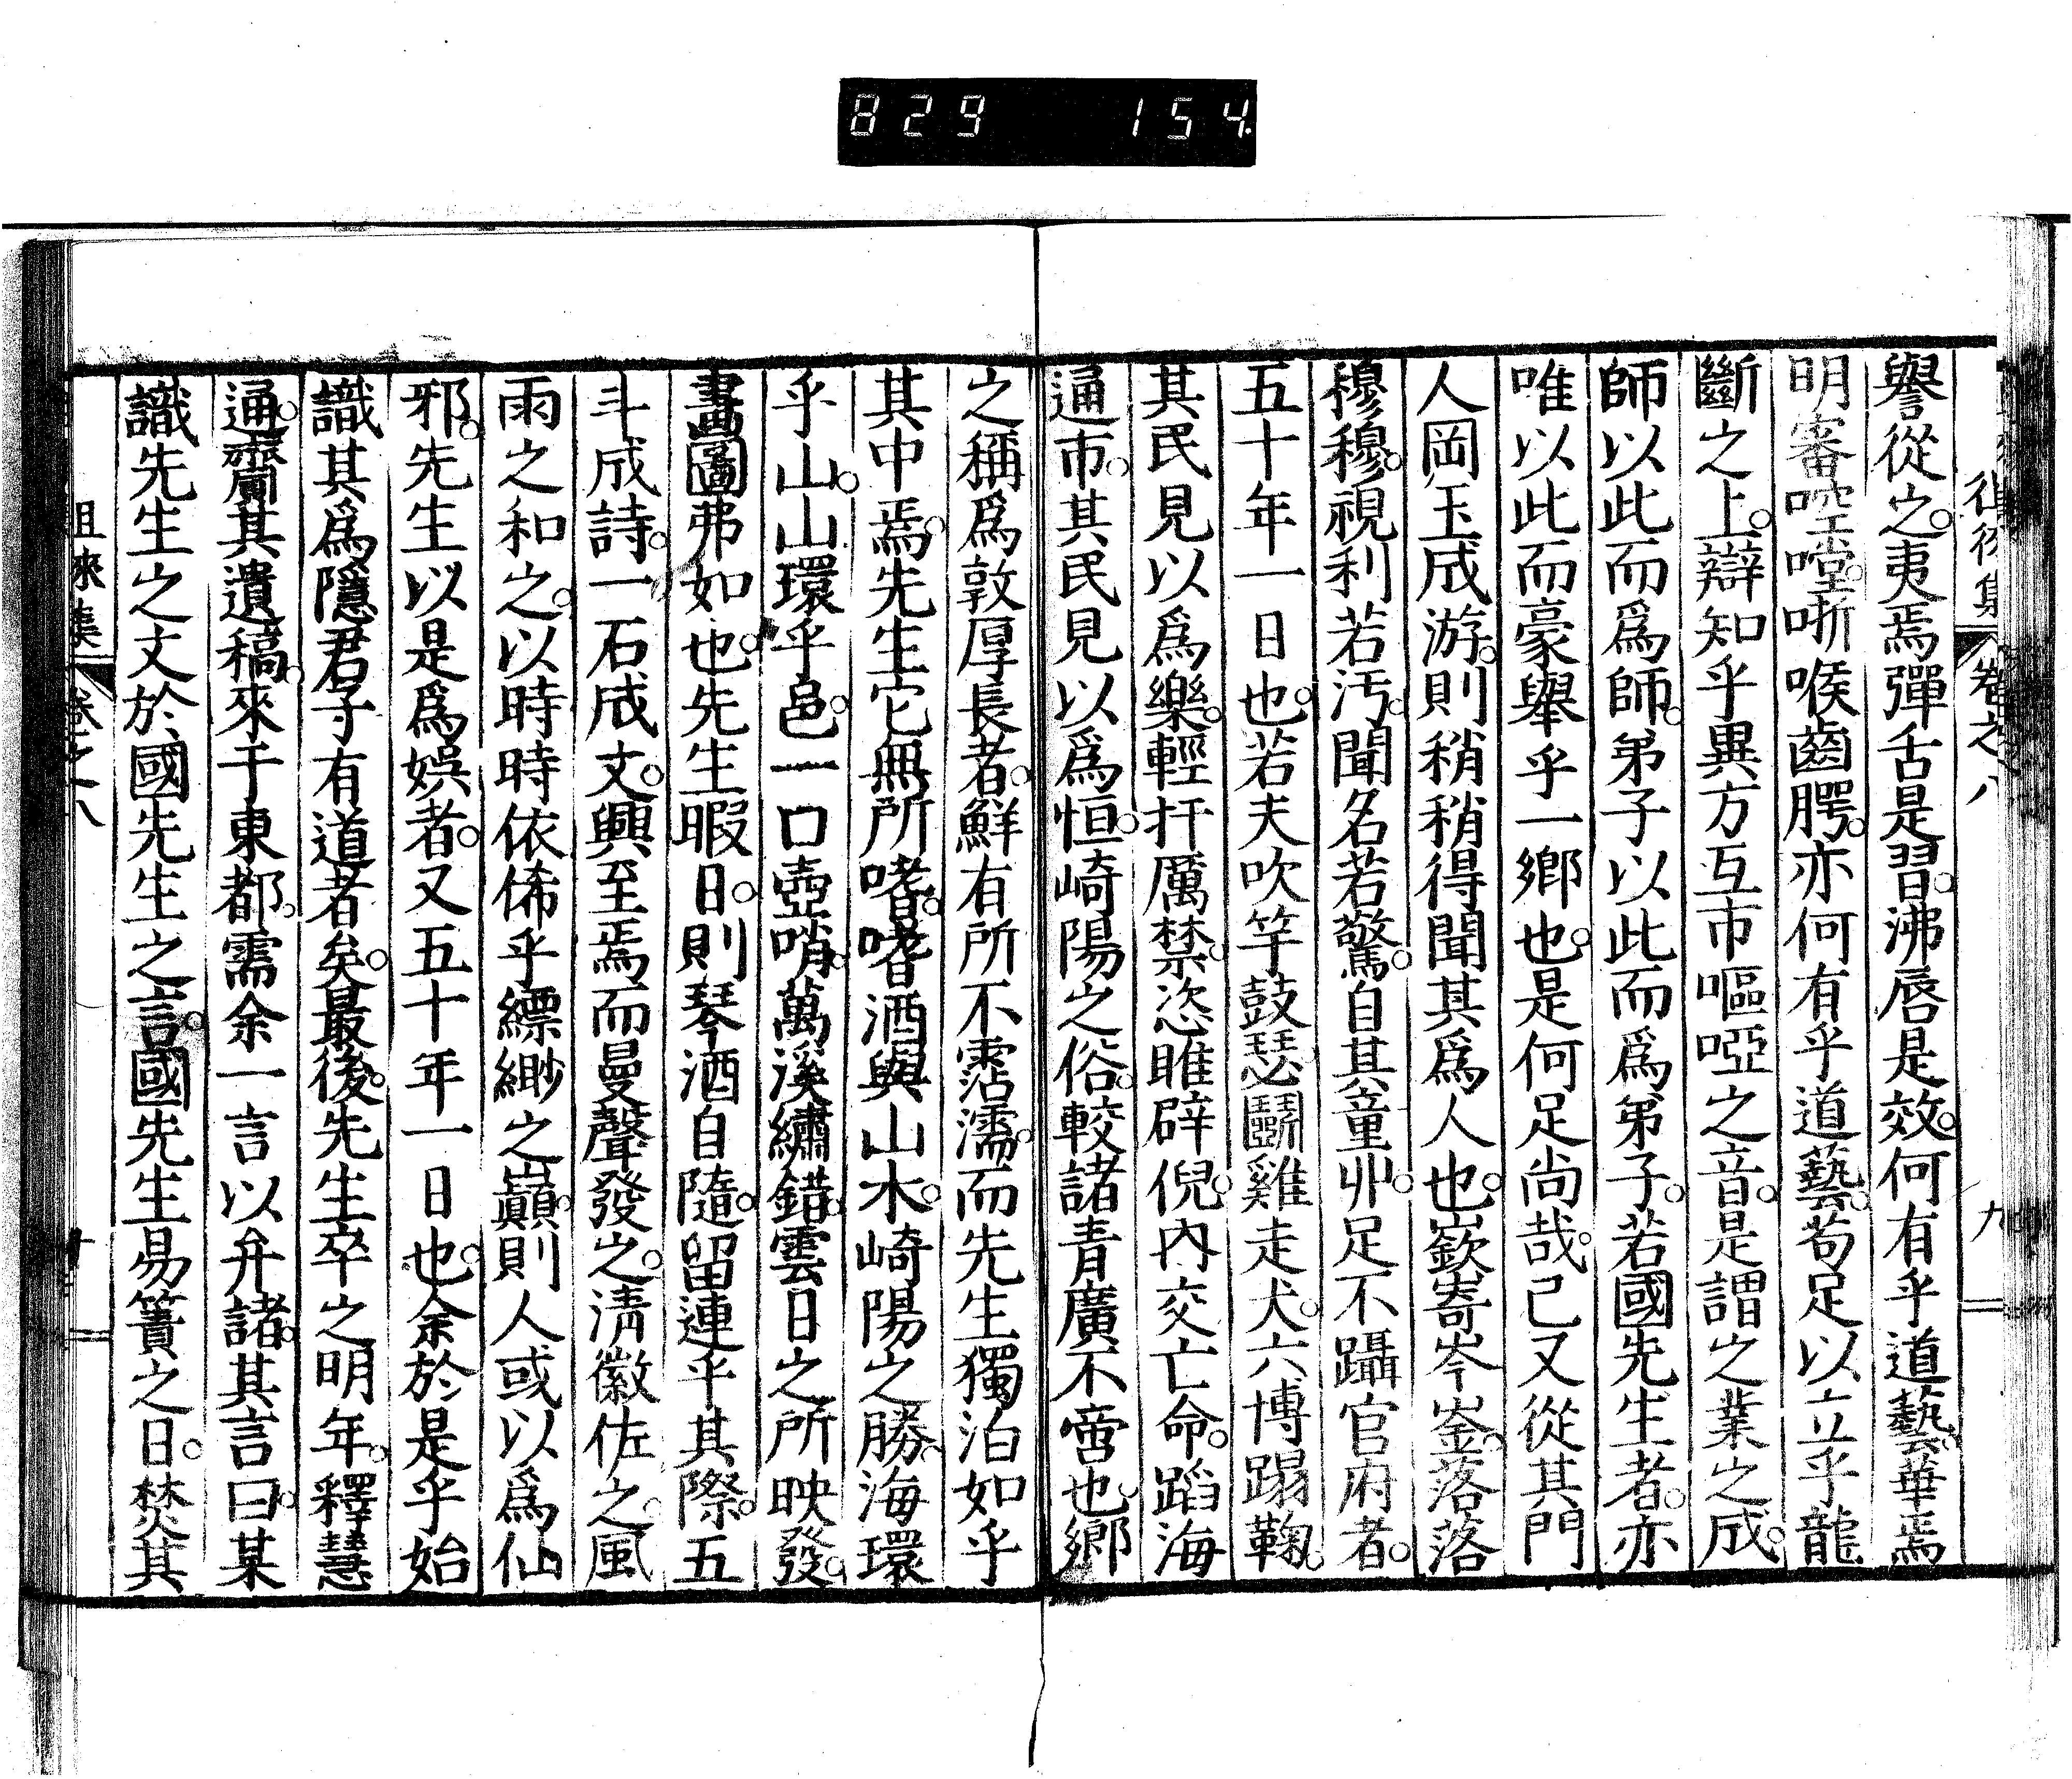 829 154
徂徠集 卷之八 九
譽從之。夷焉彈舌是習。沸唇是效。何有乎道藝。華焉
明審啌嘡。哳喉齒腭。亦何有乎道藝。苟足以立乎龍
斷之上。辯知乎異方互市嘔啞之音。是謂之業之成。
師以此而爲師。弟子以此而爲弟子。若國先生者。亦
唯以此而豪舉乎一鄉也。是何足尚哉。已又從其門
人岡玉成游。則稍稍得聞其爲人也。嶔嵜岑崟。落落
穆穆。視利若汚。聞名若驚。自其童丱。足不躡官府者。
五十年一日也。若夫吹竽鼓瑟。鬭雞走犬。六博蹋鞠。
其民見以爲樂。輕扞厲禁。恣睢辟倪。內交亡命。蹈海
通市。其民見以爲恒。崎陽之俗。較諸青廣不啻也。鄉
之稱爲敦厚長者。鮮有所不霑濡。而先生獨泊如乎
其中焉。先生它無所嗜。嗜酒與山水。崎陽之勝。海環
乎山。山環乎邑。一口壺哨。萬溪繡錯。雲日之所映發。
畫圖弗如也。先生暇日。則琴酒自隨。留連乎其際。五
斗成詩。一石成文。興至焉而曼聲發之。清徽佐之。風
雨之和之。以時時依俙乎縹緲之巔。則人或以爲仙
邪。先生以是爲娛者。又五十年一日也。余於是乎始
識其爲隱君子有道者矣。最後。先生卒之明年。釋慧
通。齎其遺稿。來于東都。需余一言以弁諸。其言曰。某
識先生之文於國先生之言。國先生易簀之日。焚其
徂徠集 卷之八